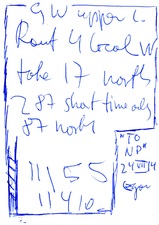 GW upper L.
Rout 4 local W
take 17 north
287 short time only
87 north
11/55
11410
"TO
NP"
24 VII 14